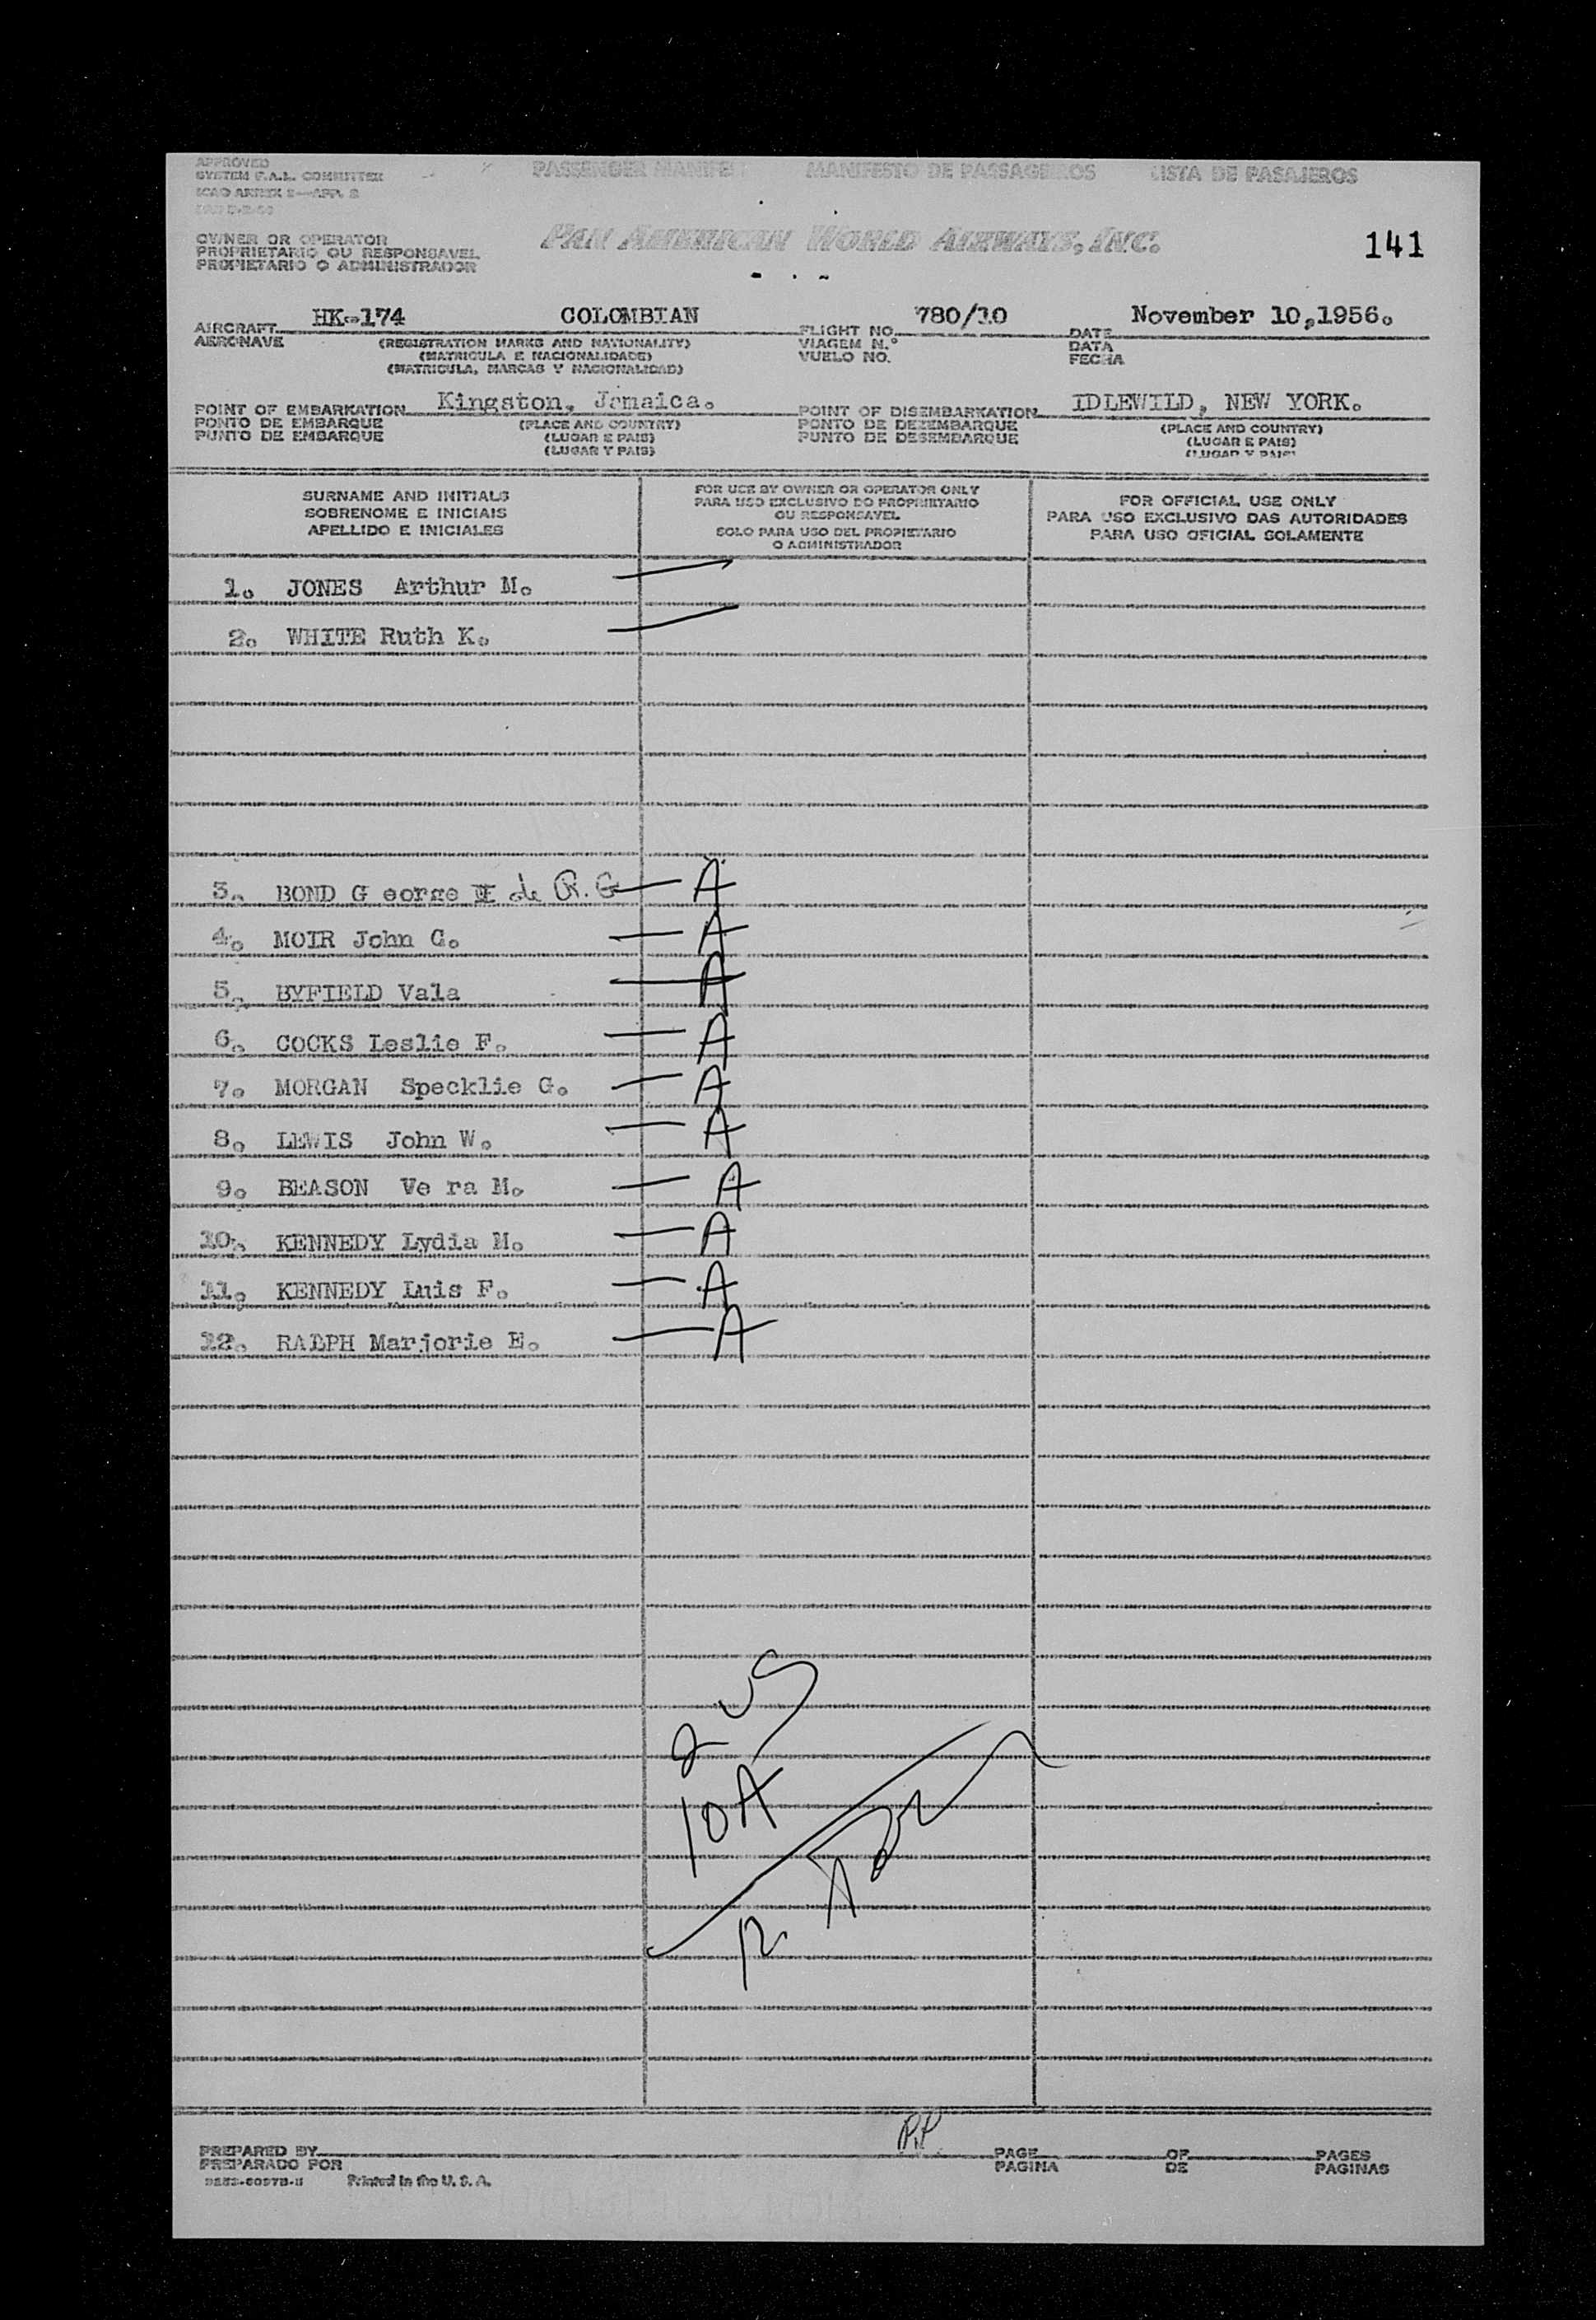 APPROVED
SYSTEM F.A.L. COMMITTEE
ICAO ANNEX 9—APP. 2
PASSENGER MANIFEST MANIFESTO DE PASSAGEIROS LISTA DE PASAJEROS
OWNER OR OPERATOR
PROPRIETARIO OU RESPONSAVEL
PROPIETARIO O ADMINISTRADOR
PAN AMERICAN WORLD AIRWAYS, INC.
141
AIRCRAFT HK-174 COLOMBIAN FLIGHT NO. 780/10 DATE November 10,1956.
AERONAVE (REGISTRATION MARKS AND NATIONALITY) VIAGEM N.° DATA
(MATRICULA E NACIONALIDADE) VUELO NO. FECHA
(MATRICULA, MARCAS Y NACIONALIDAD)
POINT OF EMBARKATION Kingston, Jamaica. POINT OF DISEMBARKATION IDLEWILD, NEW YORK.
PONTO DE EMBARQUE (PLACE AND COUNTRY) PONTO DE DEZEMBARQUE (PLACE AND COUNTRY)
PUNTO DE EMBARQUE (LUGAR E PAIS) PUNTO DE DESEMBARQUE (LUGAR E PAIS)
(LUGAR Y PAIS) (LUGAR Y PAIS)
SURNAME AND INITIALS
SOBRENOME E INICIAIS
APELLIDO E INICIALES
FOR USE BY OWNER OR OPERATOR ONLY
PARA USO EXCLUSIVO DO PROPRIETARIO
OU RESPONSAVEL
SOLO PARA USO DEL PROPIETARIO
O ADMINISTRADOR
FOR OFFICIAL USE ONLY
PARA USO EXCLUSIVO DAS AUTORIDADES
PARA USO OFICIAL SOLAMENTE
1. JONES Arthur M.
2. WHITE Ruth K.
3. BOND G eorge de R. G — A
4. MOIR John G. — A
5. BYFIELD Vala — A
6. COCKS Leslie F. — A
7. MORGAN Specklie G. — A
8. LEWIS John W. — A
9. BEASON Ve ra M. — A
10. KENNEDY Lydia M. — A
11. KENNEDY Luis F. — A
12. RALPH Marjorie E. — A
2 US
10 A
12
P.P.
PREPARED BY PAGE OF PAGES
PREPARADO POR PAGINA DE PAGINAS
Printed in the U. S. A.